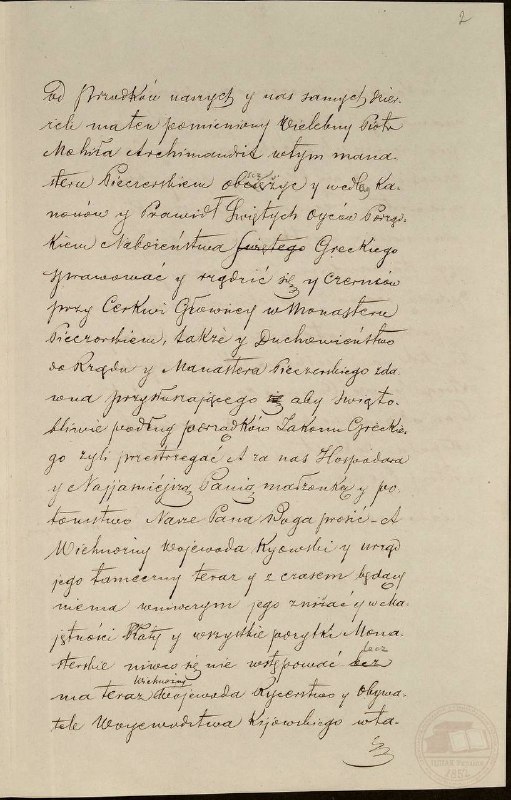 2
od przodków naszych y nas samych dzier-
żeli ma ten pomieniony Wielebny Piotr
Mohiła Archimandrit w tym mana-
steru Pieczerskiem y według Ka-
nonów y Prawidł Świętych oyców Porząd-
kiem Nabożeństwa Świętego Greckiego
sprawować y rządzić się y Czerńców
przy Cerkwi Głowney w Monasteru
Pieczorskiem, także y Duchowieństwo
do Rządu y Manastera Pieczerskiego zda-
wna przysłuszającego aby święto-
bliwie podług porządków Zakonu Greckie-
go żyli przestrzegać A za nas Hospodara
y Najjaśniejszą Panią małżonkę y po-
tomstwo Nasze Pana Boga prosić – A
Wielmożny Wojewoda Kyowski y urząd
jego tameczny teraz y z czasem będący
niema wniwczym jego zniżać y w Ma-
jętności y wszystkie pożytki Mona-
sterskie niwco się nie wstępować lecz
ma teraz Wielmożny Wojewoda Rycerstwo y obywa-
tele Woyewodztwa Kijowskiego w ta-
1852